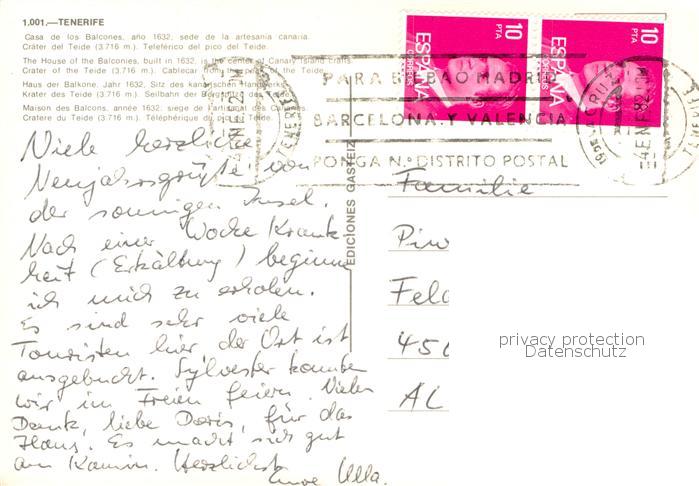 1.001.—TENERIFE
Casa de los Balcones, año 1632, sede de la artesanía canaria.
Cráter del Teide (3.716 m.). Teleférico del pico del Teide.
The House of the Balconies, built in 1632, is the center of Canary Island crafts.
Crater of the Teide (3.716 m). Cablecar from the peak of the Teide.
Haus der Balkone. Jahr 1632, Sitz des kanarischen Handwerks.
Krater des Teide (3.716 m). Seilbahn der Bergspitze
Maison des Balcons, année 1632, siege de l'artisanat des Canaries.
Cratere du Teide (3.716 m). Téléphérique du pic du Teide.
ESPAÑA
CORREOS
10
PTA
ESPAÑA
CORREOS
10
PTA
PARA BILBAO MADRID
BARCELONA Y VALENCIA
PONGA N.º DISTRITO POSTAL
EDICIONES GASTEIZ
Viele herzliche
Neujahrsgrüße von
der sonnigen Insel.
Nach einer Woche Krank
heit (Erkältung) beginne
ich mich zu erholen.
Es sind sehr viele
Touristen hier der Ort ist
ausgebucht. Sylvester konnten
wir im Freien feiern. Vielen
Dank, liebe Doris, für das
Haus. Es macht sich gut
am Kamin. Herzlichst
Eure Ulla.
Familie
Pin
Feld
450
AL
privacy protection
Datenschutz